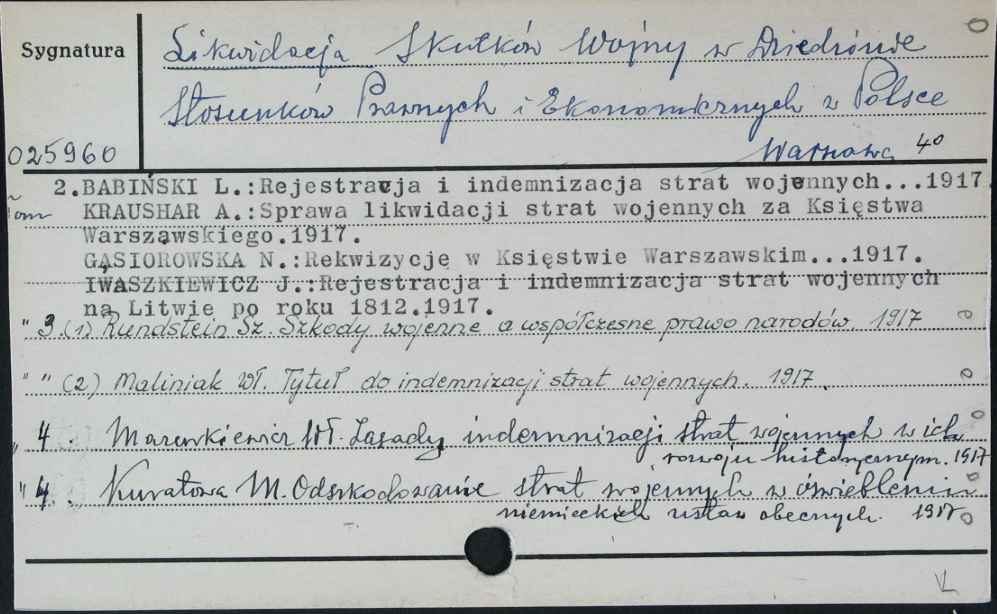 Sygnatura
Likwidacja Skutków Wojny w Dziedzinie
Stosunków Prawnych i Ekonomicznych w Polsce
025960
Warszawa 40
2.BABIŃSKI L.:Rejestracja i indemnizacja strat wojennych...1917.
Tom KRAUSHAR A.:Sprawa likwidacji strat wojennych za Księstwa
Warszawskiego.1917.
GĄSIOROWSKA N.:Rekwizycje w Księstwie Warszawskim...1917.
IWASZKIEWICZ J.:Rejestracja i indemnizacja strat wojennych
na Litwie po roku 1812.1917.
" 3.(1) Rundstein Sz. Szkody wojenne a współczesne prawo narodów. 1917
" " (2) Maliniak Wł. Tytuł do indemnizacji strat wojennych. 1917.
" 4. Marenkiewicz Wł. Zasady indemnizacji strat wojennych w ich
rozwoju historycznym. 1917
" 4. Kuratowa M. Odszkodowanie strat wojennych w oświetleniu
niemieckich ustaw obecnych. 1917
VL